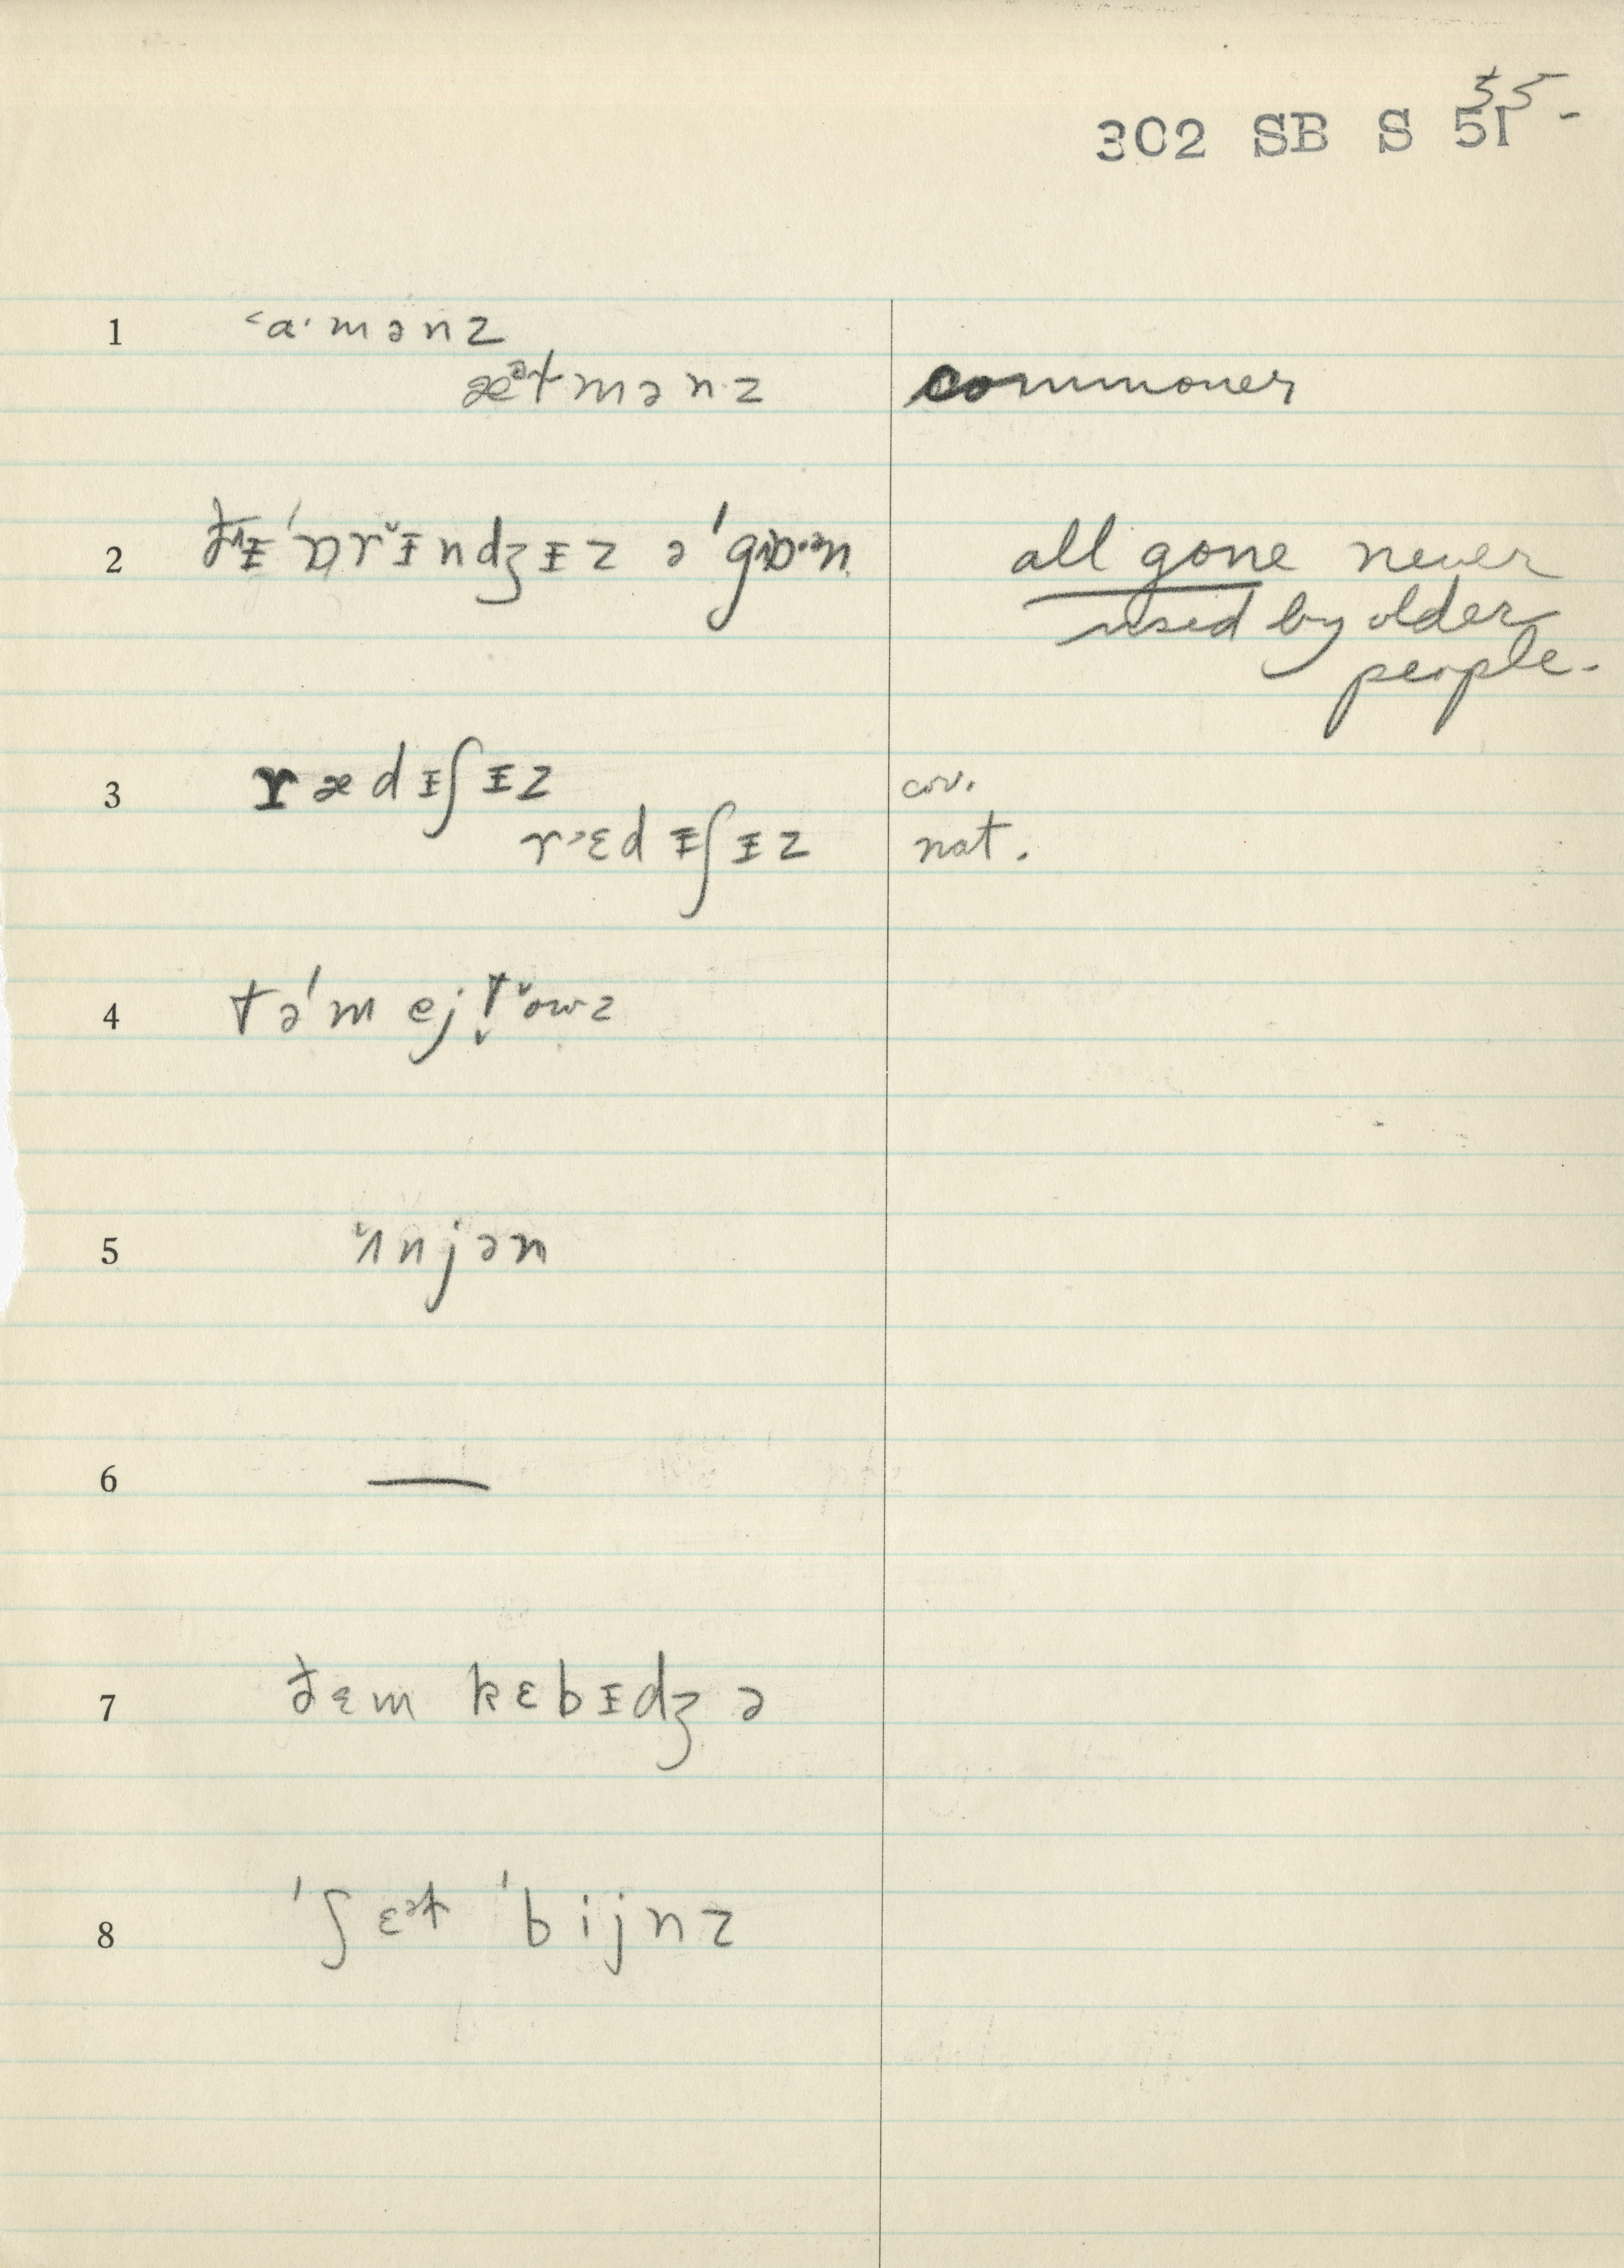 55-
302 SB S 51
1 ˂a·mənz
æᵊɫmənz commoner
2 ðᵻ 'ɒrᵻ̆ndʒᵻz ə 'gɒ·ᵊn all gone never
used by older
people.
3 ræd ᵻʃᵻz cor.
r˃ɛdᵻʃᵻz nat.
4 tə'mejt̬˅owz
5 ˅ʌnjən
6 —
7 ðɛm kɛbᵻdʒə
8 'ʃɛᵊɫ 'bijnz